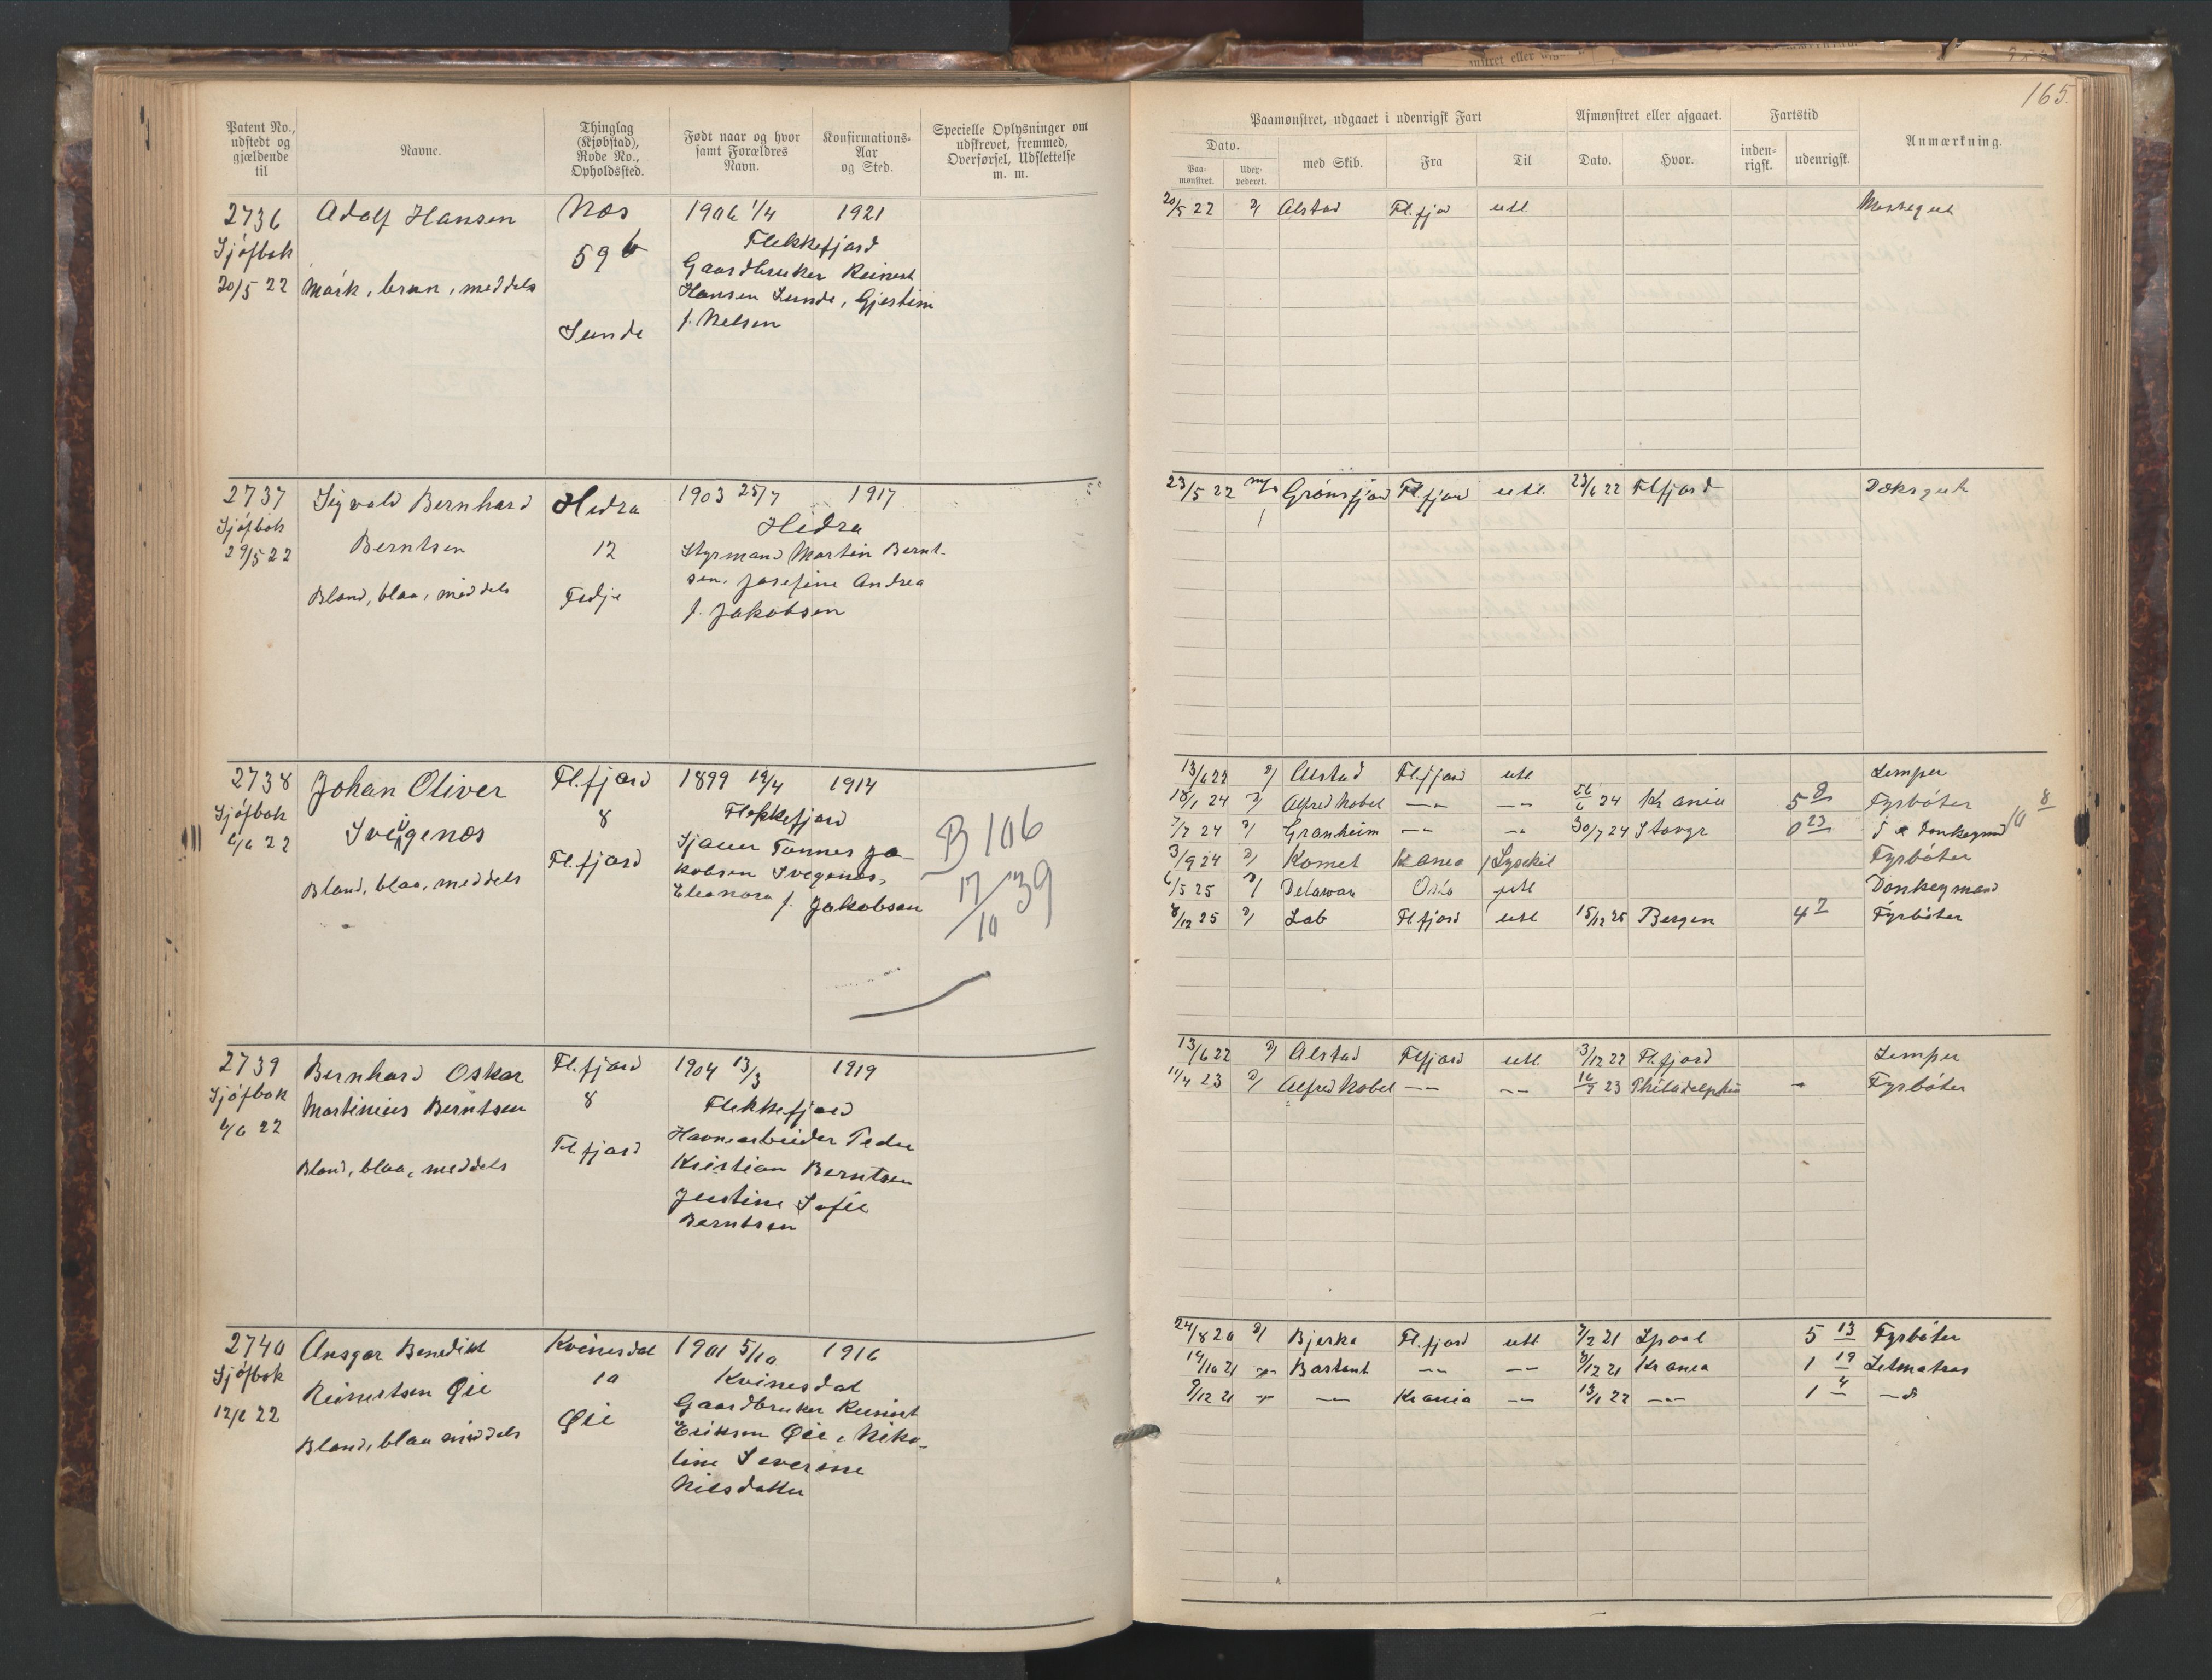 165.
Patent No., udstedt og gjældende til
Navne.
Thinglag (Kjøbstad), Rode No., Opholdssted.
Født naar og hvor samt Forældres Navn.
Konfirmations-Aar og Sted.
Specielle Oplysninger om udskrevet, fremmed, Overførsel, Udslettelse m. m.
Paamønstret, udgaaet i udenrigsk Fart
Afmønstret eller afgaaet.
Fartstid
Anmærkning.
Dato.
med Skib.
Fra
Til
Dato.
Hvor.
inden-rigsk.
udenrigsk.
Paa-mønstret.
Udex-pederet.
2736 Adolf Hansen Næs 1906 1/4 1921
Sjöfbok 59 b Flekkefjord
20/5 22 Mørk, brun, meddels Gaardbruker Reinert
Hansen Sunde, Gjertine
Sunde f. Nelsen
20/5 22 D/ Alstad Fl.fjord utl. Messegut
2737 Sigvald Bernhard Hidra 1903 25/7 1917
Sjöfbok Berntsen 12 Hidra
29/5 22 Styrmand Martin Bernt-
sen. Josefine Andrea
Bland, blaa, middels Fedje f. Jakobsen
23/5 22 Grönsfjord Fl.fjord utl. 23/6 22 Flfjord Dæksgut
2738 Johan Oliver Fl.fjord 1899 19/4 1914
Sjöfbok Svegenes 8 Flekkefjord
6/6 22 Sjauer Tønnes Ja-
Bland, blaa, meddels Fl.fjord kobsen Svegenes,
Eleonora f. Jakobsen
B 106
17/10 39
13/6 22 D/ Alstad Fl.fjord utl Lemper
18/1 24 D/ Alfred Nobel —"— —"— 26/6 24 Kr ania 5 8 Fyrböter
7/7 24 D/ Granheim —"— —"— 30/7 24 Stavgr 0 23 Donkeymand
3/9 24 D/ Komet Krania Lysekil Fyrböter
6/5 25 D/ Delaware Oslo utl Donkeymand
8/12 25 D/ Lab Fl fjord utl 15/12 25 Bergen 4 7 Fyrböter
2739 Bernhard Oskar Fl.fjord 1904 13/3 1919
Sjöfbok Martinius Berntsen 8 Flekkefjord
6/6 22 Havnearbeider Peder
Bland, blaa, meddels Fl.fjord Kristian Berntsen
Justine Sofie
Berntsen
13/6 22 D/ Alstad Flfjord utl. 3/12 22 Fl.fjord Lemper
11/4 23 D/ Alfred Nobel —"— —"— 16/9 23 Philadelphia — Fyrböter
2740 Ansgar Benedikt Kvinesdal 1901 5/10 1916
Sjöfbok Reinertsen Øie 10 Kvinesdal
12/6 22 Gaardbruker Reinert
Bland, blaa middels Øie Eriksen Øie, Niko-
line Severine
Nilsdatter
24/8 20 D/ Bjerka Fl.fjord utl 7/2 21 Lpool 5 13 Fyrböter
19/10 21 Bastant —"— —"— 8/12 21 Krania 1 19 Letmatros
9/12 21 —"— Krania —"— 13/1 22 —"— 1 4 —d